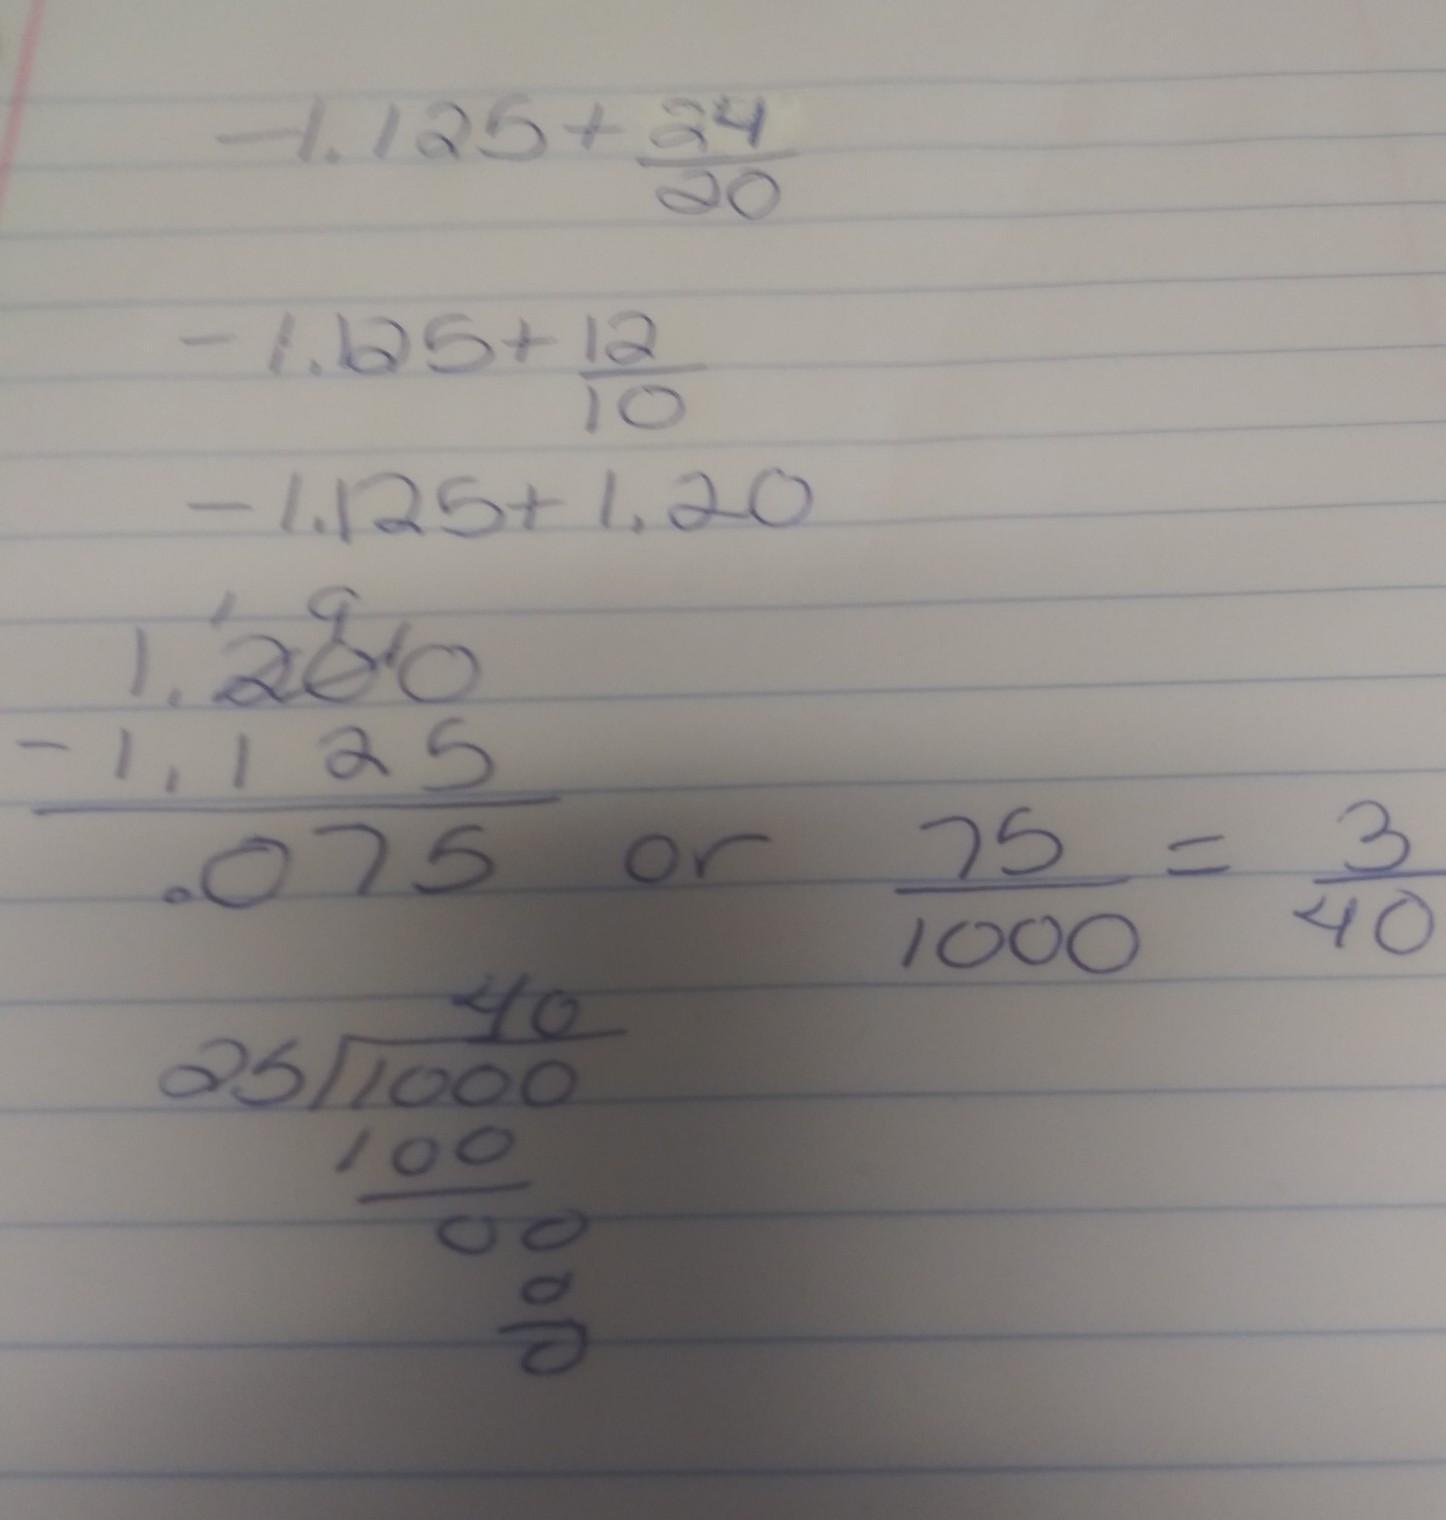 -1.125 + 24/20
-1.125 + 12/10
-1.125 + 1.20
1 9
1.20 10
-1.125
.075 or 75/1000 = 3/40
40
25)1000
100
00
0
0